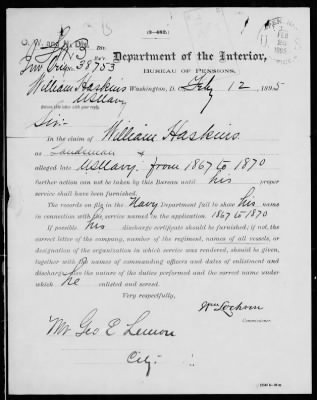 (3-482.)
O. W. and N. Div.
Inv. Orig. 38753
Department of the Interior,
BUREAU OF PENSIONS,
William Haskins
Washington, D. C., July 12, 1895
US Navy
Sir:
In the claim of William Haskins
as Landsman
alleged late US Navy from 1867 to 1870
further action can not be taken by this Bureau until his proper
service shall have been furnished.
The records on file in the Navy Department fail to show his name
in connection with the service named in the application. 1867 to 1870
If possible his discharge certificate should be furnished; if not, the
correct letter of the company, number of the regiment, names of all vessels, or
designation of the organization in which service was rendered, should be given,
together with the names of commanding officers and dates of enlistment and
discharge, also the nature of the duties performed and the correct name under
which he enlisted and served.
Very respectfully,
Wm Lochren
Commissioner.
Mr Geo E Lemon
City